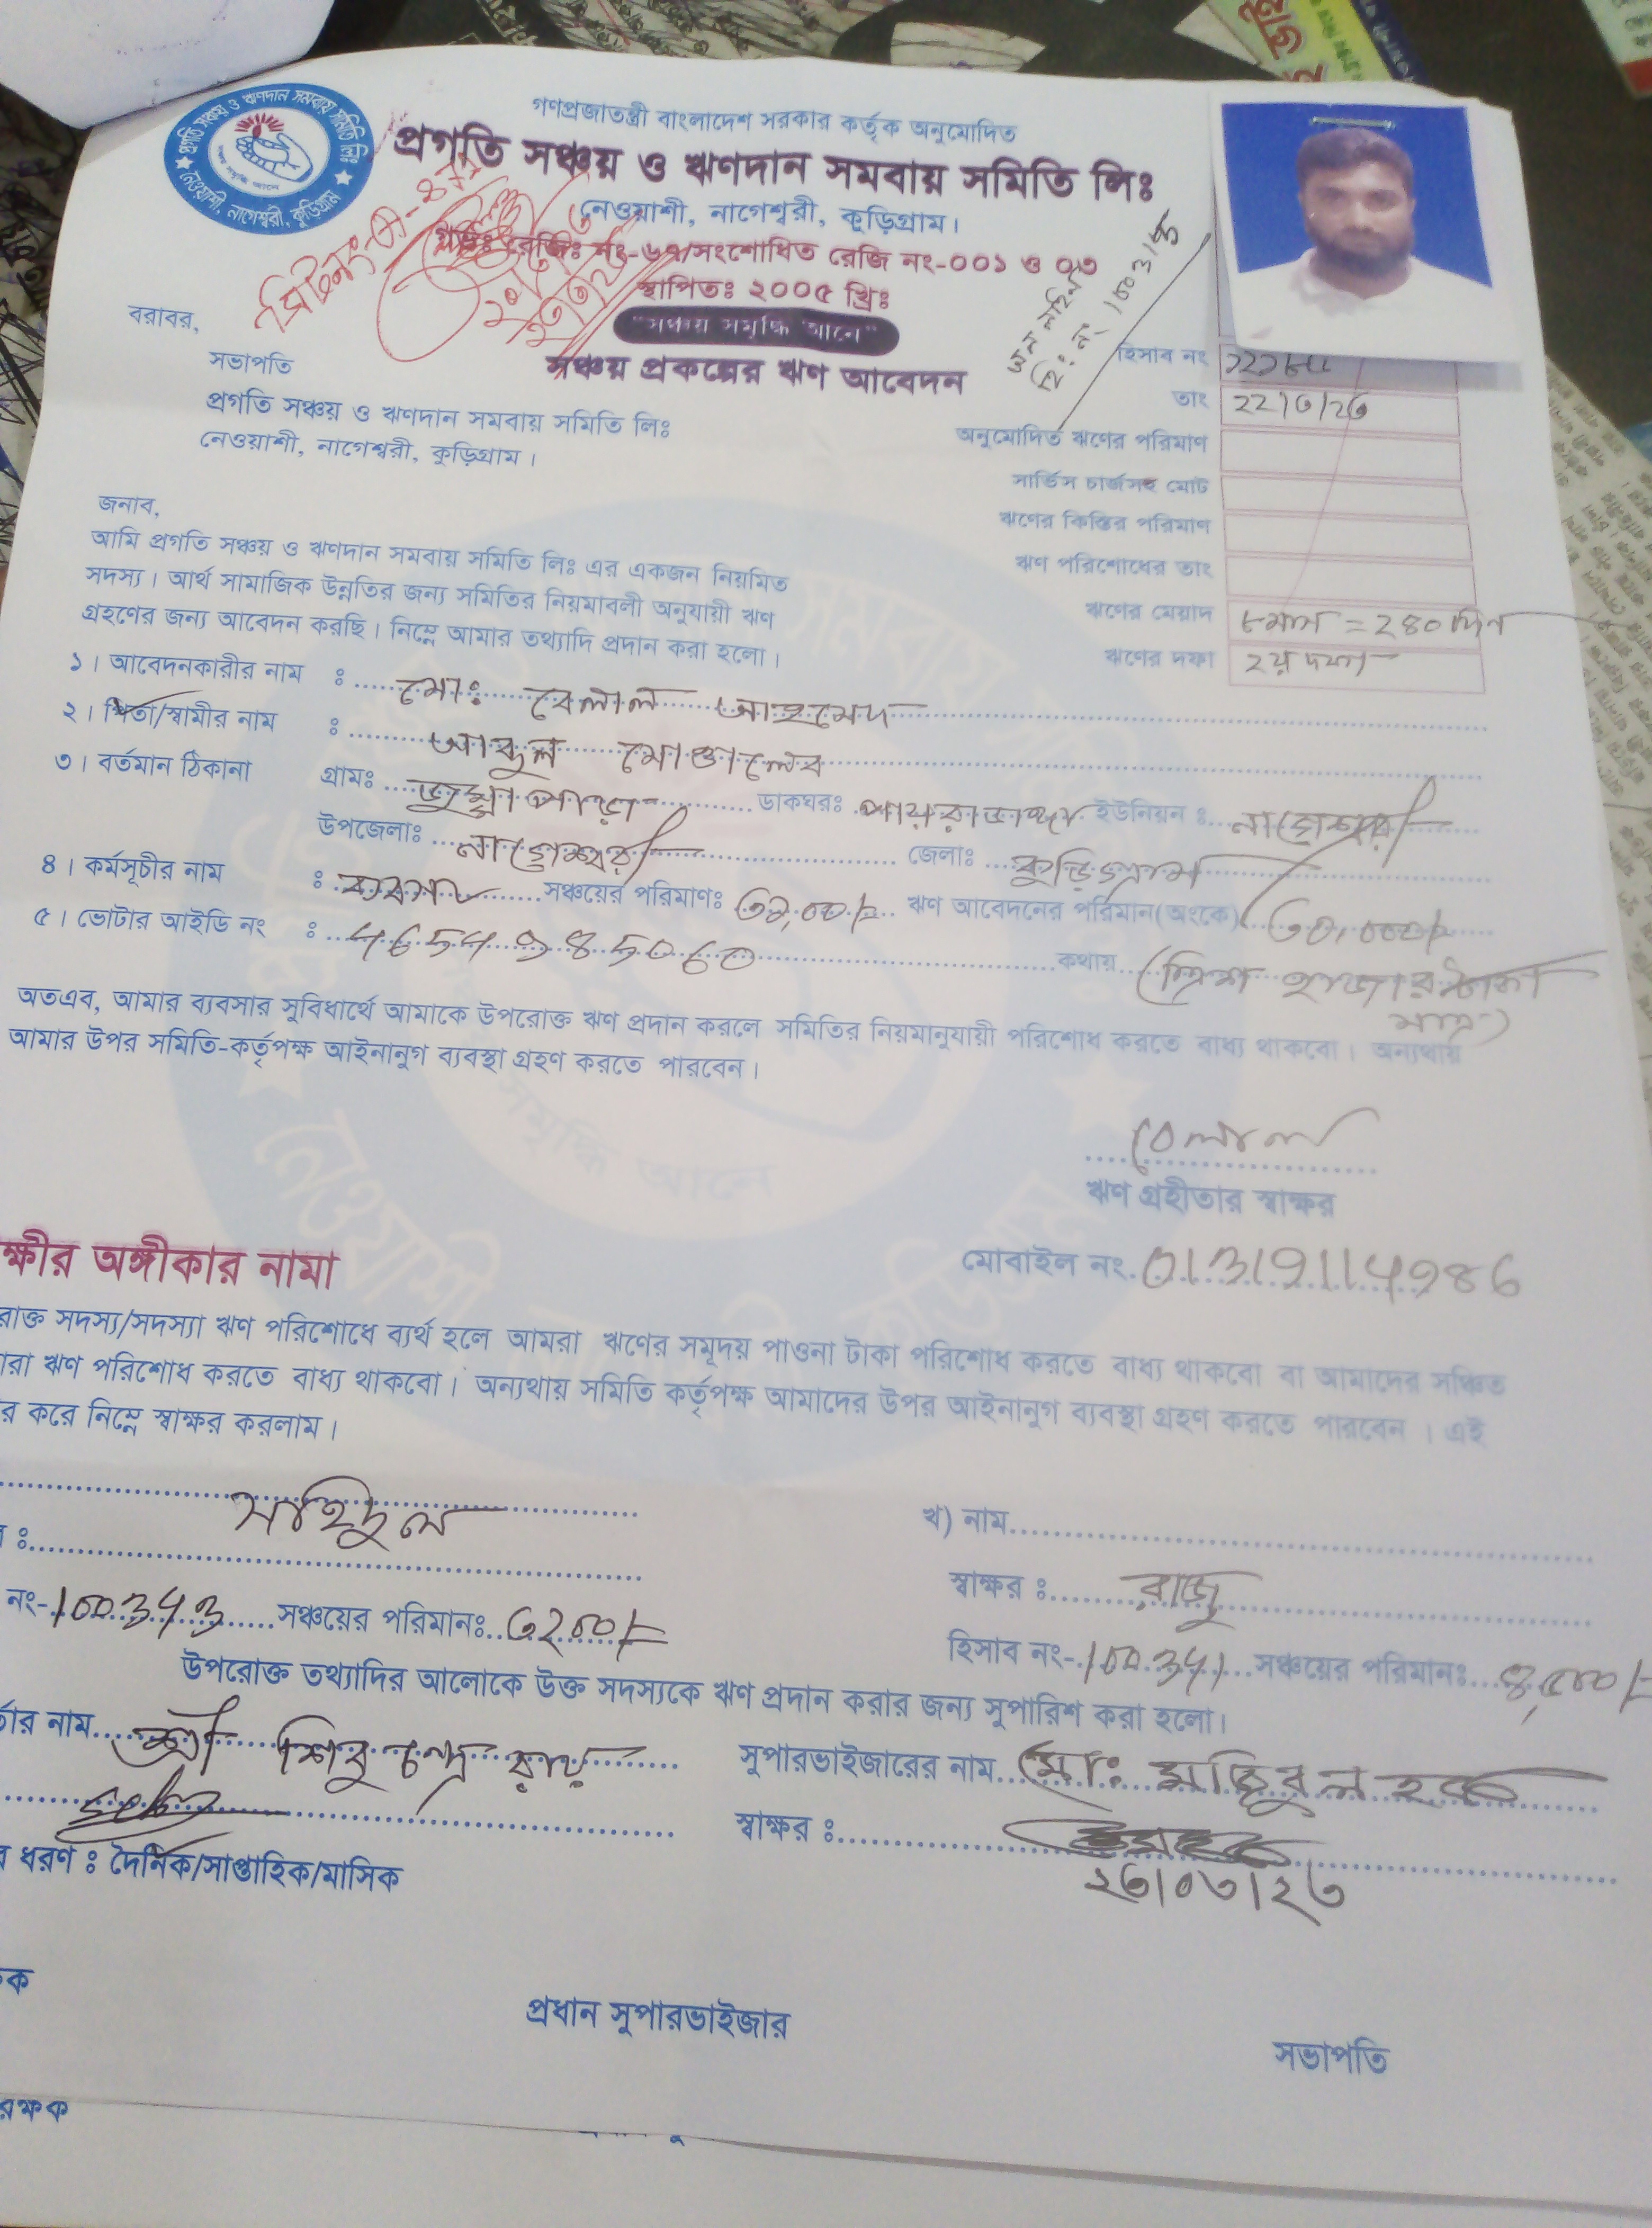 প্রগতি সঞ্চয় ও ঋণদান সমবায় সমিতি লিঃ
নেওয়াশী, নাগেশ্বরী, কুড়িগ্রাম
গণপ্রজাতন্ত্রী বাংলাদেশ সরকার কর্তৃক অনুমোদিত
প্রগতি সঞ্চয় ও ঋণদান সমবায় সমিতি লিঃ
নেওয়াশী, নাগেশ্বরী, কুড়িগ্রাম।
রেজিঃ নং-৬৭/সংশোধিত রেজি নং-০০১ ও ০৩
স্থাপিতঃ ২০০৫ খ্রিঃ
"সঞ্চয় সমৃদ্ধি আনে"
সঞ্চয় প্রকল্পের ঋণ আবেদন
বরাবর,
সভাপতি
প্রগতি সঞ্চয় ও ঋণদান সমবায় সমিতি লিঃ
নেওয়াশী, নাগেশ্বরী, কুড়িগ্রাম।
হিসাব নং
তাং ২২/৩/২৩
অনুমোদিত ঋণের পরিমাণ
সার্ভিস চার্জসহ মোট
ঋণের কিস্তির পরিমাণ
ঋণ পরিশোধের তাং
ঋণের মেয়াদ ৮মাস = ২৪০ দিন
ঋণের দফা ২য় দফা
জনাব,
আমি প্রগতি সঞ্চয় ও ঋণদান সমবায় সমিতি লিঃ এর একজন নিয়মিত
সদস্য। আর্থ সামাজিক উন্নতির জন্য সমিতির নিয়মাবলী অনুযায়ী ঋণ
গ্রহণের জন্য আবেদন করছি। নিম্নে আমার তথ্যাদি প্রদান করা হলো।
১। আবেদনকারীর নাম : মোঃ বেলাল আহমেদ
২। পিতা/স্বামীর নাম : আব্দুল মোত্তালেব
৩। বর্তমান ঠিকানা গ্রামঃ ডাকঘরঃ পায়রাডাঙ্গা ইউনিয়ন ঃ নাগেশ্বরী
উপজেলাঃ নাগেশ্বরী জেলাঃ কুড়িগ্রাম
৪। কর্মসূচীর নাম ঃ ব্যবসা সঞ্চয়ের পরিমাণঃ ঋণ আবেদনের পরিমান(অংকে) ৩০,০০০/=
৫। ভোটার আইডি নং ঃ 4654985060 কথায় (ত্রিশ হাজার টাকা
মাত্র)
অতএব, আমার ব্যবসার সুবিধার্থে আমাকে উপরোক্ত ঋণ প্রদান করলে সমিতির নিয়মানুযায়ী পরিশোধ করতে বাধ্য থাকবো। অন্যথায়
আমার উপর সমিতি-কর্তৃপক্ষ আইনানুগ ব্যবস্থা গ্রহণ করতে পারবেন।
বেলাল
ঋণ গ্রহীতার স্বাক্ষর
ক্ষীর অঙ্গীকার নামা
মোবাইল নং. 01319114986
রাক্ত সদস্য/সদস্যা ঋণ পরিশোধে ব্যর্থ হলে আমরা ঋণের সমূদয় পাওনা টাকা পরিশোধ করতে বাধ্য থাকবো বা আমাদের সঞ্চিত
রা ঋণ পরিশোধ করতে বাধ্য থাকবো। অন্যথায় সমিতি কর্তৃপক্ষ আমাদের উপর আইনানুগ ব্যবস্থা গ্রহণ করতে পারবেন। এই
র করে নিম্নে স্বাক্ষর করলাম।
খ) নাম
সাহিদুল
স্বাক্ষর ঃ রাজু
নং- 100343 সঞ্চয়ের পরিমানঃ ৩২০০/=
হিসাব নং- 100341 সঞ্চয়ের পরিমানঃ ৪,৫০০/=
উপরোক্ত তথ্যাদির আলোকে উক্ত সদস্যকে ঋণ প্রদান করার জন্য সুপারিশ করা হলো।
র্তার নাম শ্রী শিবু চন্দ্র রায়
সুপারভাইজারের নাম মোঃ হক
স্বাক্ষর ঃ
২৩/০৩/২৩
র ধরণ ঃ দৈনিক/সাপ্তাহিক/মাসিক
ক
প্রধান সুপারভাইজার
সভাপতি
রক্ষক